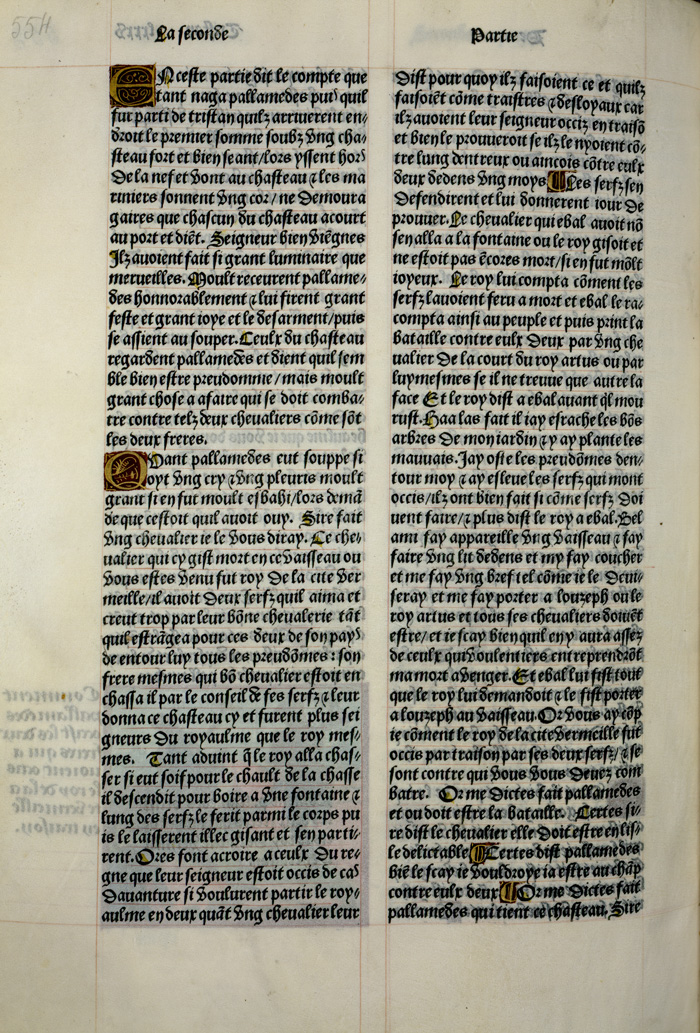 554
La seconde
Partie
EN ceste partie dit le compte que
tant naga pallamedes puis quil
fut parti de tristan quilz arriuerent en⸗
droit le premier somme soubz vng cha⸗
steau fort et bien seant/lors yssent hors
De la nef et vont au chasteau ⁊ les ma
riniers sonnent vng cor/ne Demoura
gaires que chascun du chasteau acourt
au port et diẽt. Seigneur bien viẽgnes
Ilz auoient fait si grant luminaire que
merueilles. Moult receurent pallame⸗
des honnorablement ⁊ lui firent grant
feste et grant ioye et le desarment/puis
se assient au souper. Ceulx du chasteau
regardent pallamedes et dient quil sem
ble bien estre preudomme/mais moult
grant chose a afaire qui se doit comba⸗
tre contre telz deux cheualiers cõme sõt
les deux freres.
QVant pallamedes eut souppe si
oyt vng cry ⁊ vng pleuris moult
grant si en fut moult esbahi/lors demã
de que cestoit quil auoit ouy. Sire fait
vng cheualier ie le vous diray. Le che⸗
ualier qui cy gist mort en ce vaisseau ou
vous estes venu fut roy De la cite ver
meille/il auoit Deux serfz quil aima et
creut trop par leur bõne cheualerie tãt
quil estrãgea pour ces deux de son pays
de entour luy tous les preudõmes: son
frere mesmes qui bõ cheualier estoit en
chassa il par le conseil de ses serfz ⁊ leur
donna ce chasteau cy et furent plus sei
gneurs Du royaulme que le roy mes⸗
mes. Tant aduint q̃ le roy alla chas⸗
ser si eut soif pour le chault de la chasse
il descendit pour boire a vne fontaine ⁊
lung des serfz le ferit parmi le corps pu
is le laisserent illec gisant et sen parti⸗
rent. Ores font acroire a ceulx Du re⸗
gne que leur seigneur estoit occis de cas
Dauanture si voulurent partir le roy⸗
aulme en deux quãt vng cheualier leur
Dist pour quoy ilz faisoient ce et quilz
faisoiẽt cõme traistres ⁊ desloyaux car
ilz auoient leur seigneur occiz en traisõ
et bien le prouueroit se ilz le nyoient cõ⸗
tre lung dentreux ou aincois cõtre eulx
deux dedens vng moys. Les serfz sen
Defendirent et lui donnerent iour De
prouuer. Le cheualier qui ebal auoit nõ
sen alla a la fontaine ou le roy gisoit et
ne estoit pas ẽcores mort/si en fut mõlt
ioyeux. Le roy lui compta cõment les
serfz lauoient feru a mort et ebal le ra⸗
compta ainsi au peuple et puis print la
bataille contre eulx Deux par vng che
ualier De la court du roy artus ou par
luymesmes se il ne treuue que autre la
face Et le roy dist a ebal auant q̃l mou
rust. Haa las fait il iay esrache les bõs
arbres De mon iardin ⁊ y ay plante les
mauuais. Jay oste les preudõmes den⸗
tour moy ⁊ ay esleue les serfz qui mont
occis/ilz ont bien fait si cõme serfz Doi
uent faire/⁊ plus dist le roy a ebal. Bel
ami fay appareille vng vaisseau ⁊ fay
faire vng lit dedens et my fay coucher
et me fay vng bref tel cõme ie le Deui⸗
seray et me fay porter a louzeph ou le
roy artus et tous ses cheualiers doiuẽt
estre/et ie scay bien quil en y aura assez
de ceulx qui voulentiers entreprendrõt
ma mort a venger. Et ebal lui fist tout
que le roy lui demandoit ⁊ le fist porter
a louzeph au vaisseau. Or vous ay cõp
te cõment le roy de la cite vermeille fut
occis par traison par ses deux serfz/⁊ se
sont contre qui vous vous Deuez com
batre. Or me Dictes fait pallamedes
et ou doit estre la bataille. Certes si⸗
re dist le cheualier elle Doit estre en lis⸗
le delictable Certes dist pallamedes
biẽ le scay ie vouldroye ia estre au chãp
contre eulx deux Or me Dictes fait
pallamedes qui tient ce chasteau. Sire